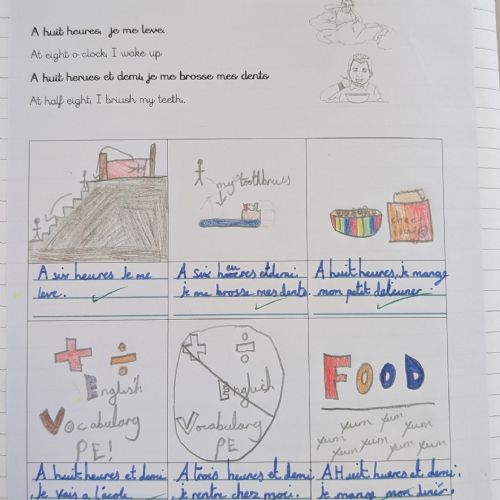 A huit heures, je me leve.
At eight o clock, I wake up
A huit herues et demi, je me brosse mes dents
At half eight, I briush my teeth.
my toothbrues
A six heures Je me
leve.
A six heures et demi
je me brosse mes dents.
A huit heures, je mange
mon petit dejeuner.
English
Vocabulary
PE!
English
Vocabulary
PE
FOOD
yum yum yum
yum yum yum
yum yum
A huit heures et demi
Je vais a l'école
A trois heures et demi
je rentre chez moi.
A Huit hueres et demi.
Je mange mon diner.